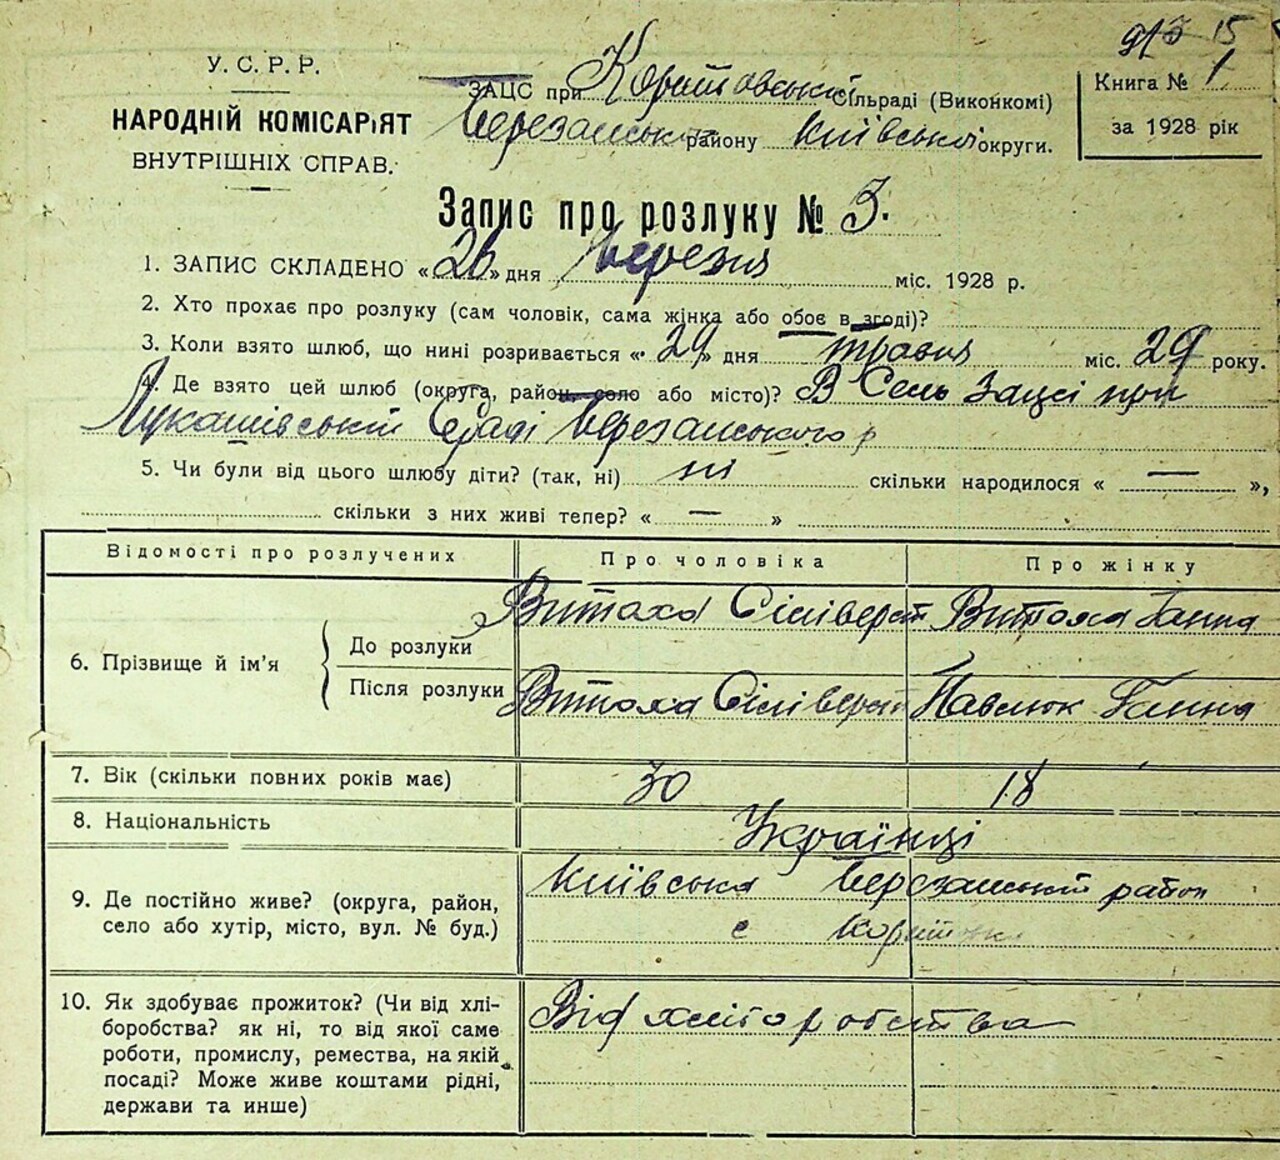 973 15
У. С. Р. Р.
НАРОДНІЙ КОМІСАРІЯТ
ВНУТРІШНІХ СПРАВ.
ЗАЦС при Коритовській сільраді (Виконкомі)
Березанськ району Київської округи.
Книга № 1
за 1928 рік
Запис про розлуку № 3.
1. ЗАПИС СКЛАДЕНО «26» дня березня міс. 1928 р.
2. Хто прохає про розлуку (сам чоловік, сама жінка або обоє в згоді)?
3. Коли взято шлюб, що нині розривається «29» дня травня міс. 29 року.
4. Де взято цей шлюб (округа, район, село або місто)? В Сель Зацсі при
Лукашівській Сраді Березанського р
5. Чи були від цього шлюбу діти? (так, ні) ні скільки народилося « — »,
скільки з них живі тепер? « — »
Відомості про розлучених Про чоловіка Про жінку
6. Прізвище й ім'я
До розлуки Витоха Сіліверст Витоха Ганна
Після розлуки Витоха Сіліверст Павлюк Ганна
7. Вік (скільки повних років має) 30 18
8. Національність Українці
9. Де постійно живе? (округа, район,
село або хутір, місто, вул. № буд.)
Київська Березанський район
с
10. Як здобуває прожиток? (Чи від хлі-
боробства? як ні, то від якої саме
роботи, промислу, ремества, на якій
посаді? Може живе коштами рідні,
держави та инше)
Від хліборобства